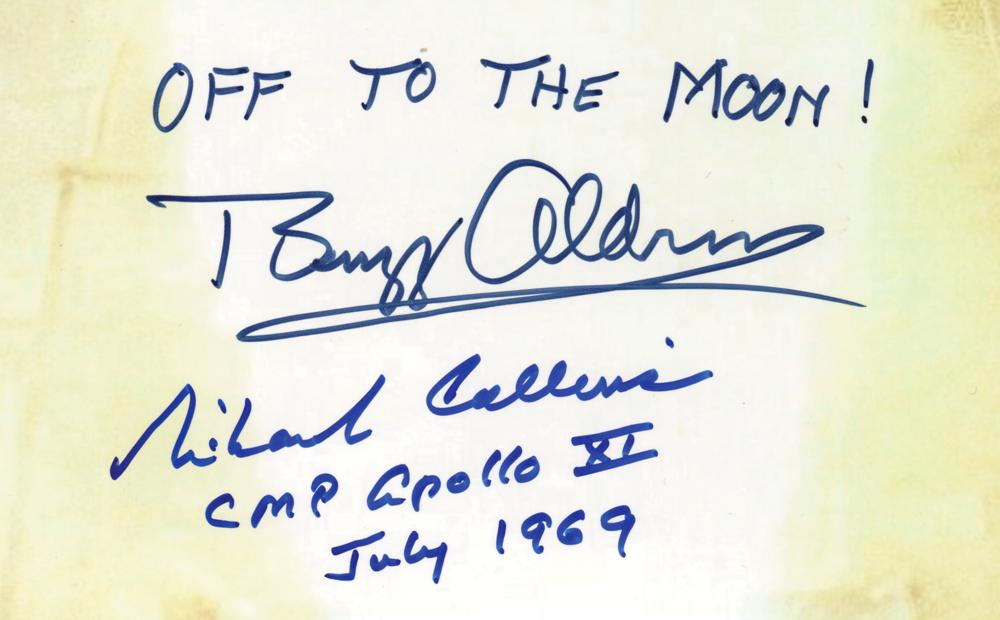 OFF TO THE MOON!
Buzz Aldrin
Michael Collins
CMP Apollo XI
July 1969